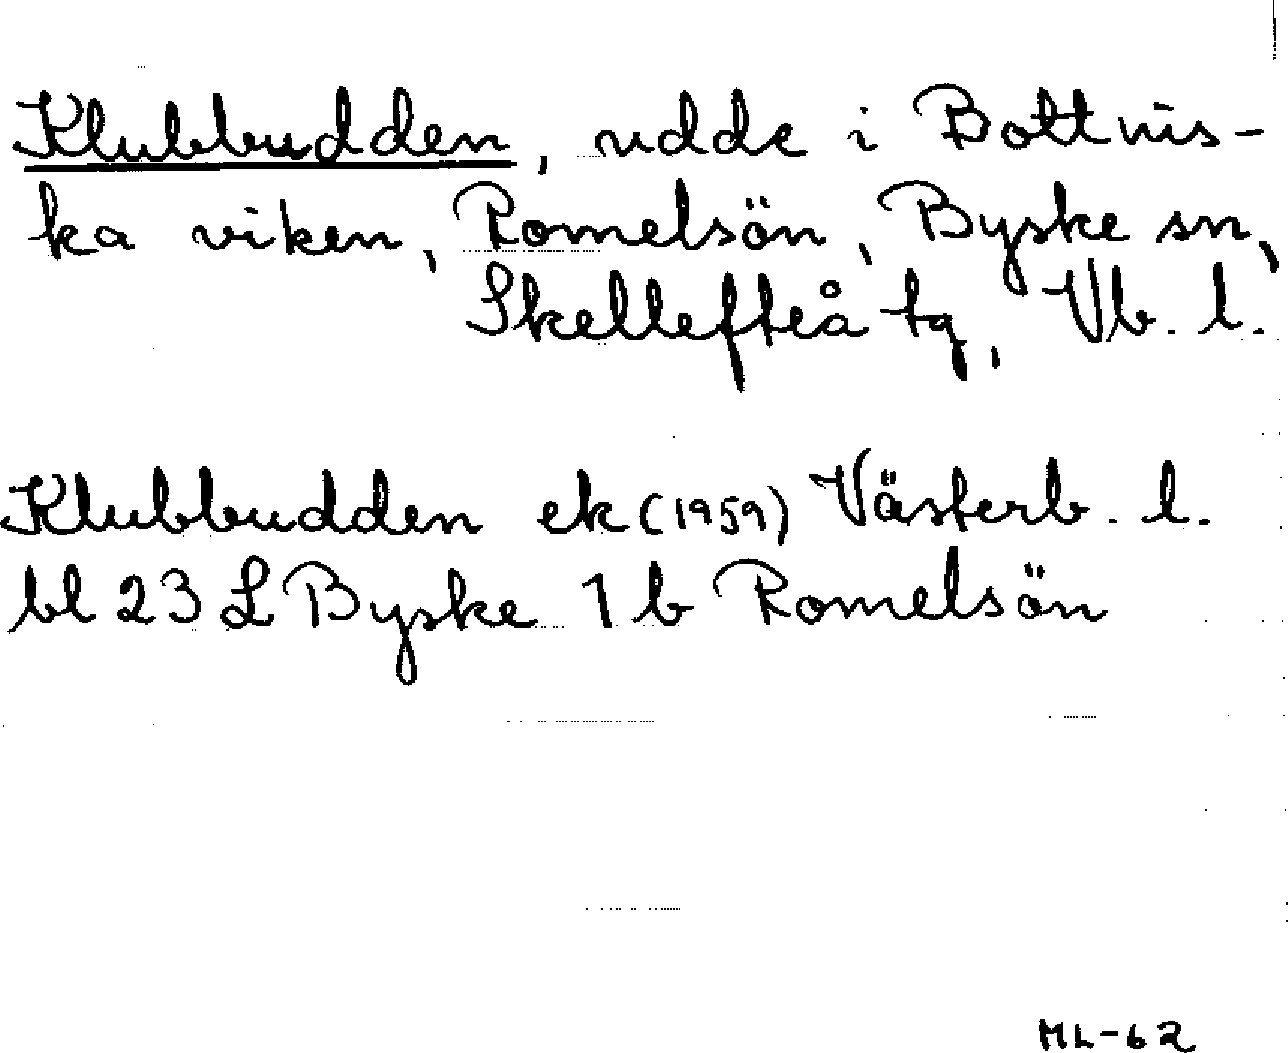 Klubbudden, udde i Bottnis-
ka viken, Romelsön, Byske sn,
Skellefteå tg, Vb. l.
Klubbudden ek (1959) Västerb. l.
bl 23 L Byske 1 b Romelsön
ML-62